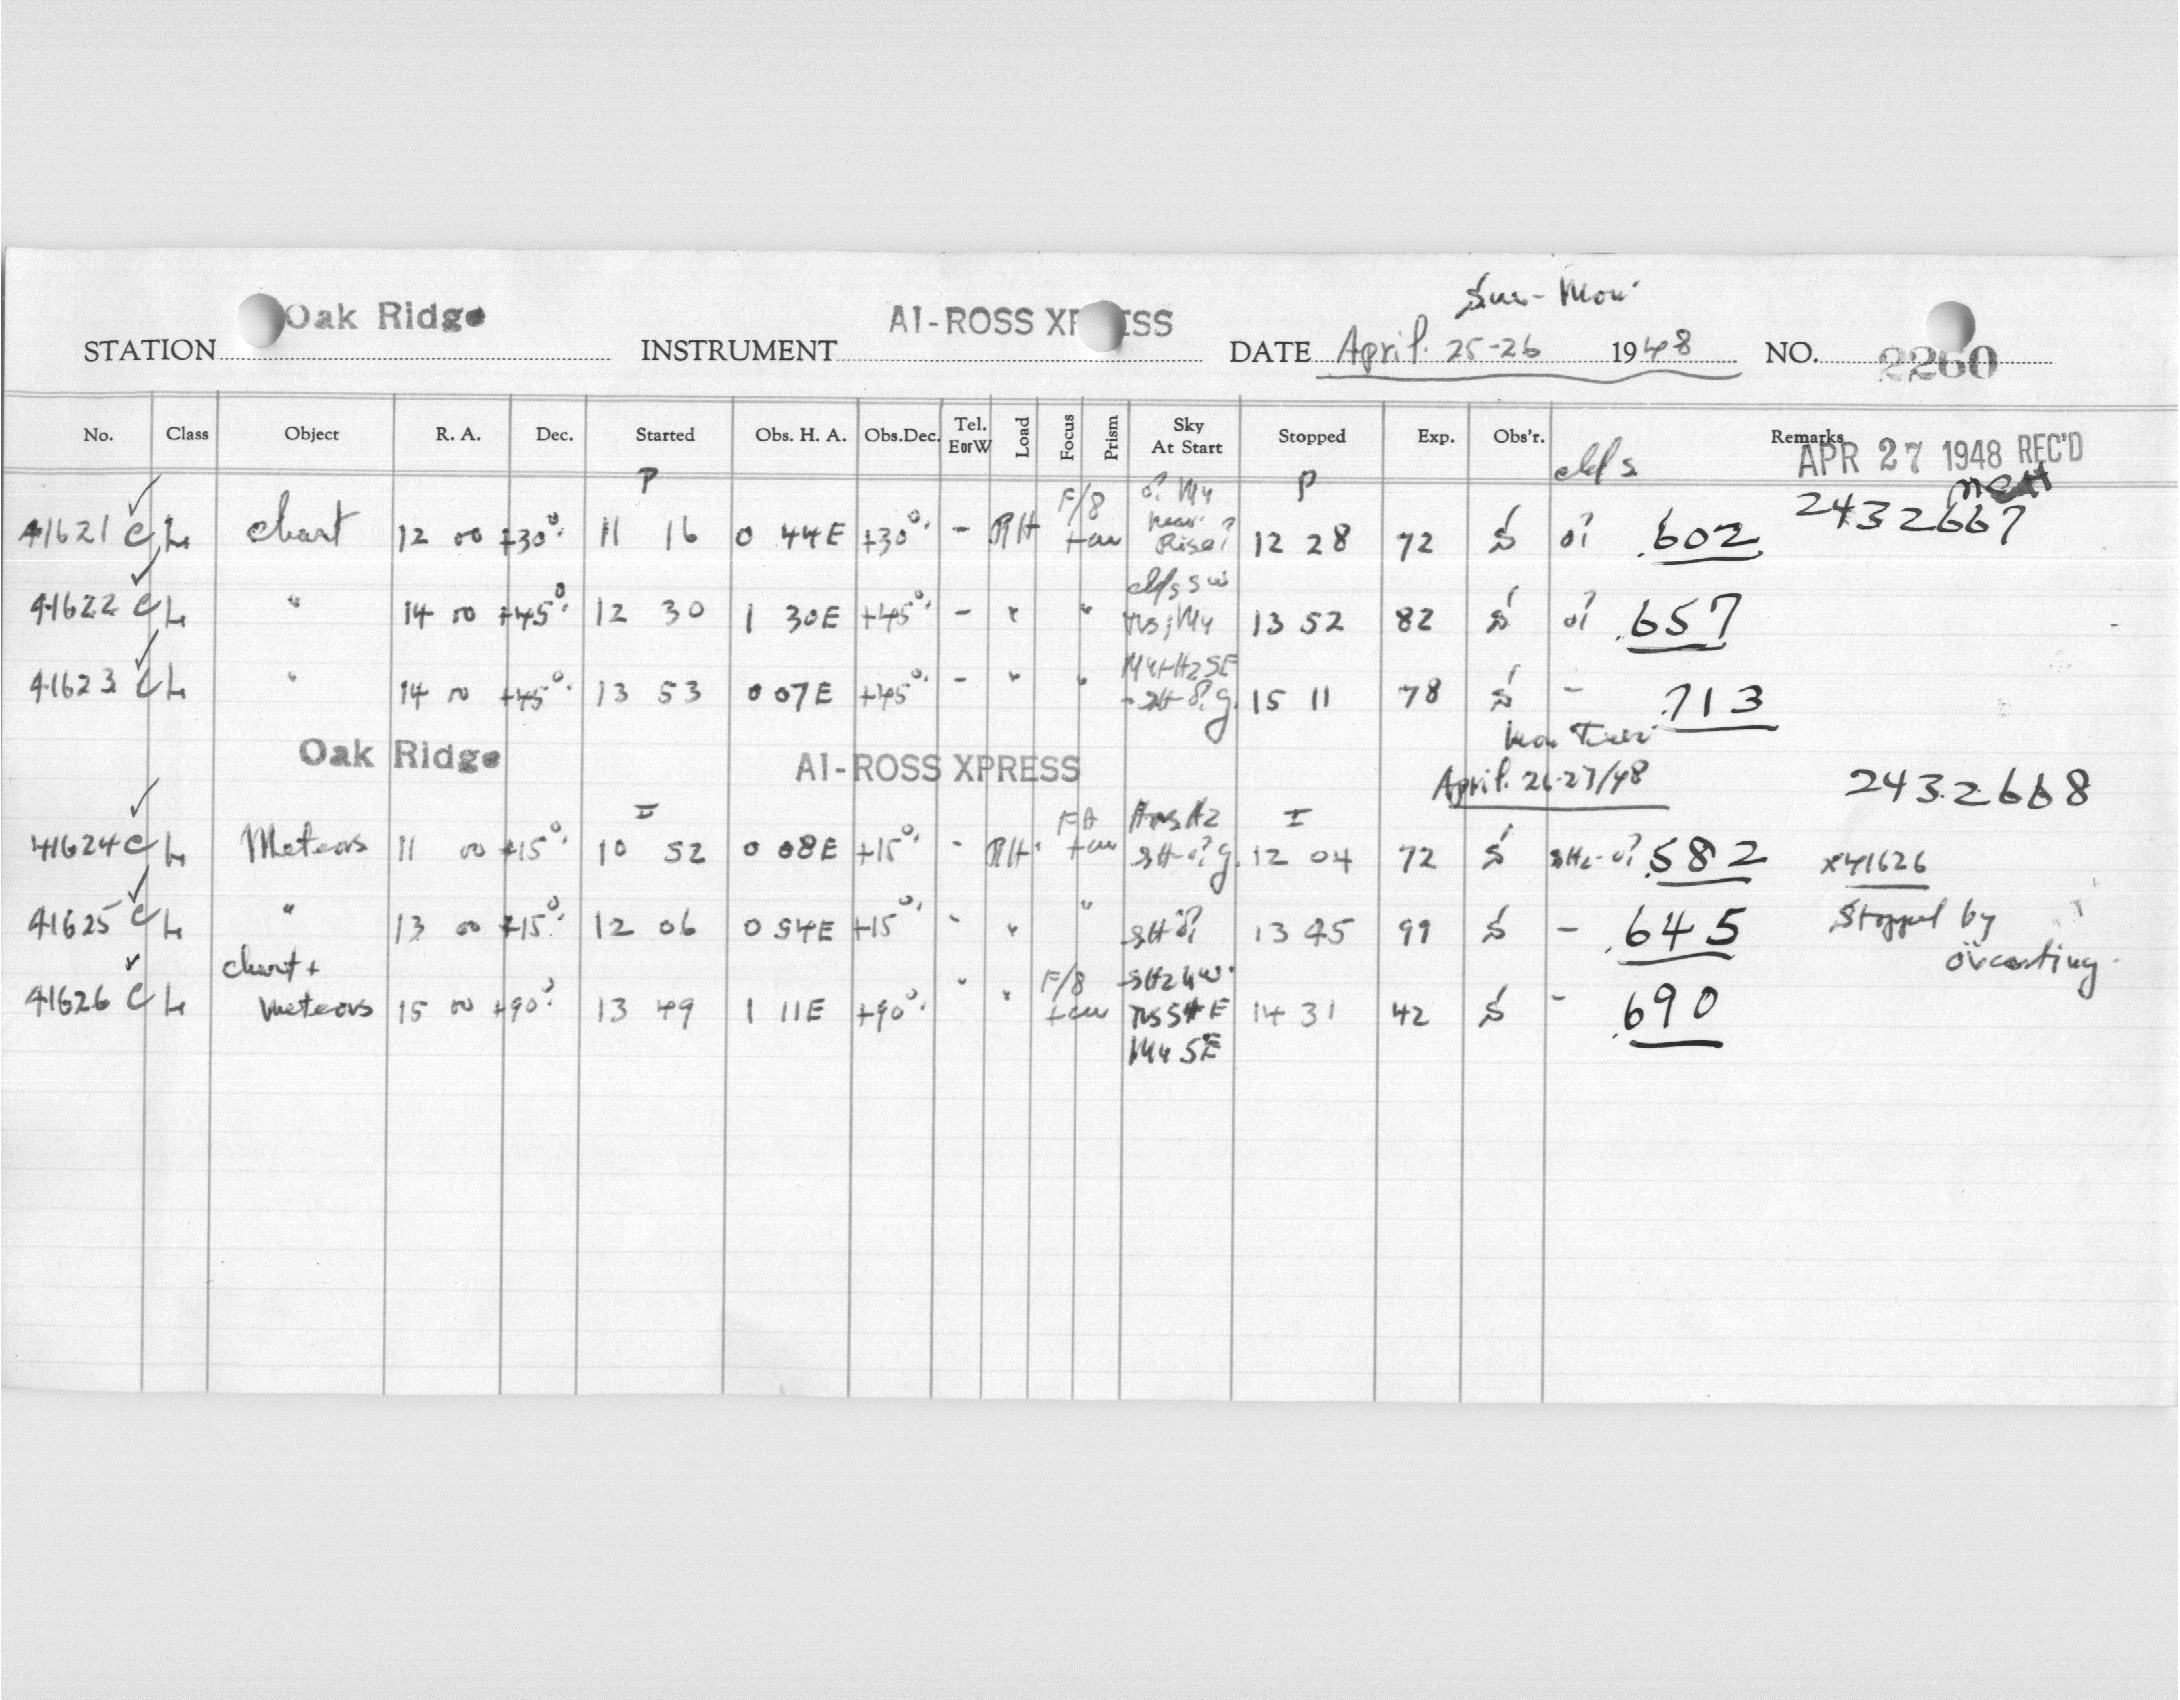 Sun-Mon
STATION Oak Ridge INSTRUMENT AI-ROSS XPRESS DATE April. 25-26 1948 NO. 2260
No. Class Object R. A. Dec. Started Obs. H. A. Obs.Dec. Tel. EorW Load Focus Prism Sky At Start Stopped Exp. Obs'r. Remarks
clds APR 27 1948 REC'D
P P
41621 C L Chart 12 00 +30° 11 16 0 44E +30° - RH F/8 12 28 72 S .602 2432667
41622 C L " 14 00 +45° 12 30 1 30E +45° - " " clds SW 13 52 82 S .657
41623 C L " 14 00 +45° 13 53 0 07E +45° - " " 15 11 78 S - .713
Oak Ridge AI-ROSS XPRESS Mon Tues
April. 26-27/48 2432668
I I
41624 C L Meteors 11 00 +15° 10 52 0 08E +15° - RH 12 04 72 S .582 x41626
41625 C L " 13 00 +15° 12 06 0 54E +15° - " " 13 45 99 S - .645 Stopped by
overcasting
41626 C L Chart + Meteors 15 00 +90° 13 49 1 11E +90° " " F/8 14 31 42 S - .690